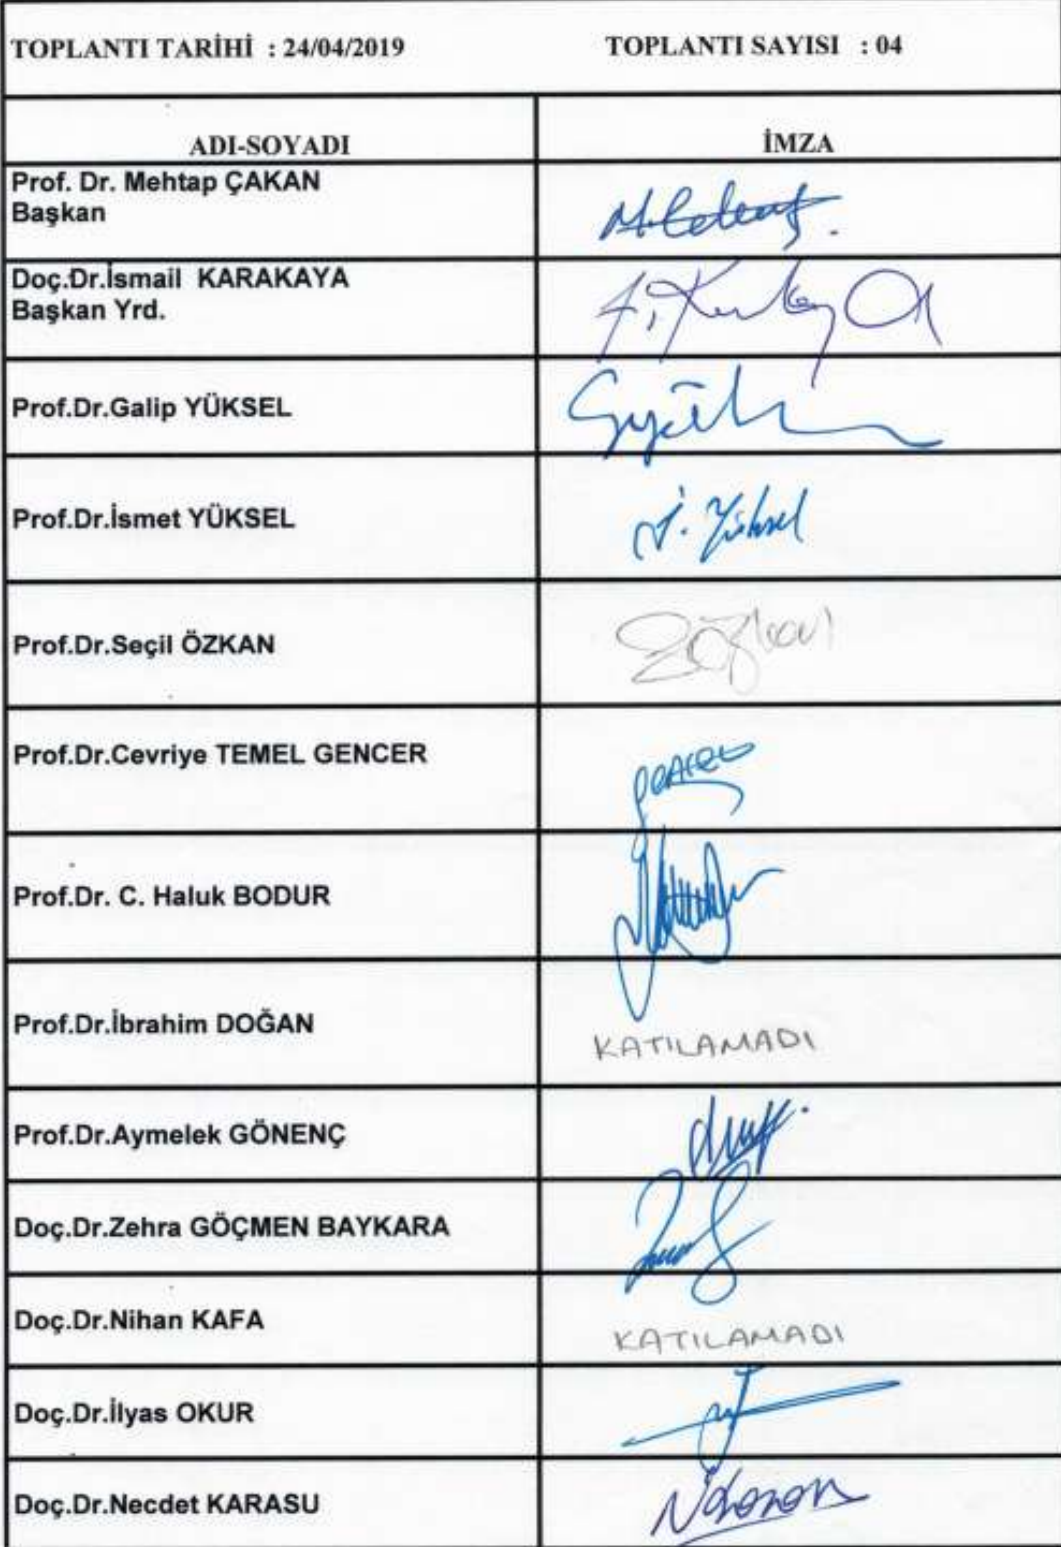 TOPLANTI TARİHİ : 24/04/2019 TOPLANTI SAYISI : 04
ADI-SOYADI İMZA
Prof. Dr. Mehtap ÇAKAN
Başkan
Doç.Dr.İsmail KARAKAYA
Başkan Yrd.
Prof.Dr.Galip YÜKSEL
Prof.Dr.İsmet YÜKSEL İ. Yüksel
Prof.Dr.Seçil ÖZKAN
Prof.Dr.Cevriye TEMEL GENCER
Prof.Dr. C. Haluk BODUR
Prof.Dr.İbrahim DOĞAN KATILAMADI
Prof.Dr.Aymelek GÖNENÇ
Doç.Dr.Zehra GÖÇMEN BAYKARA
Doç.Dr.Nihan KAFA KATILAMADI
Doç.Dr.İlyas OKUR
Doç.Dr.Necdet KARASU